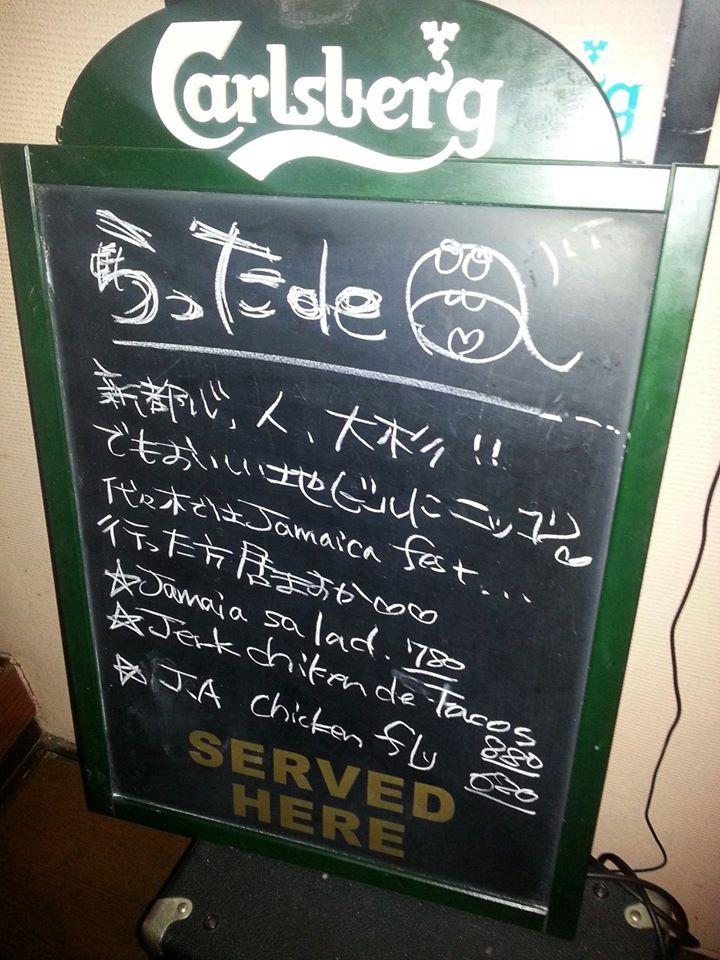 Carlsberg
うったde
新都心、人、大杉!!
でもおいしい地ビールにニッコリ
代々木ではJamaica fest...
行った方居ますか
☆Jamaia salad. 780
☆Jerk chiken de Tacos 880
☆ J.A chicken fly 680
SERVED
HERE